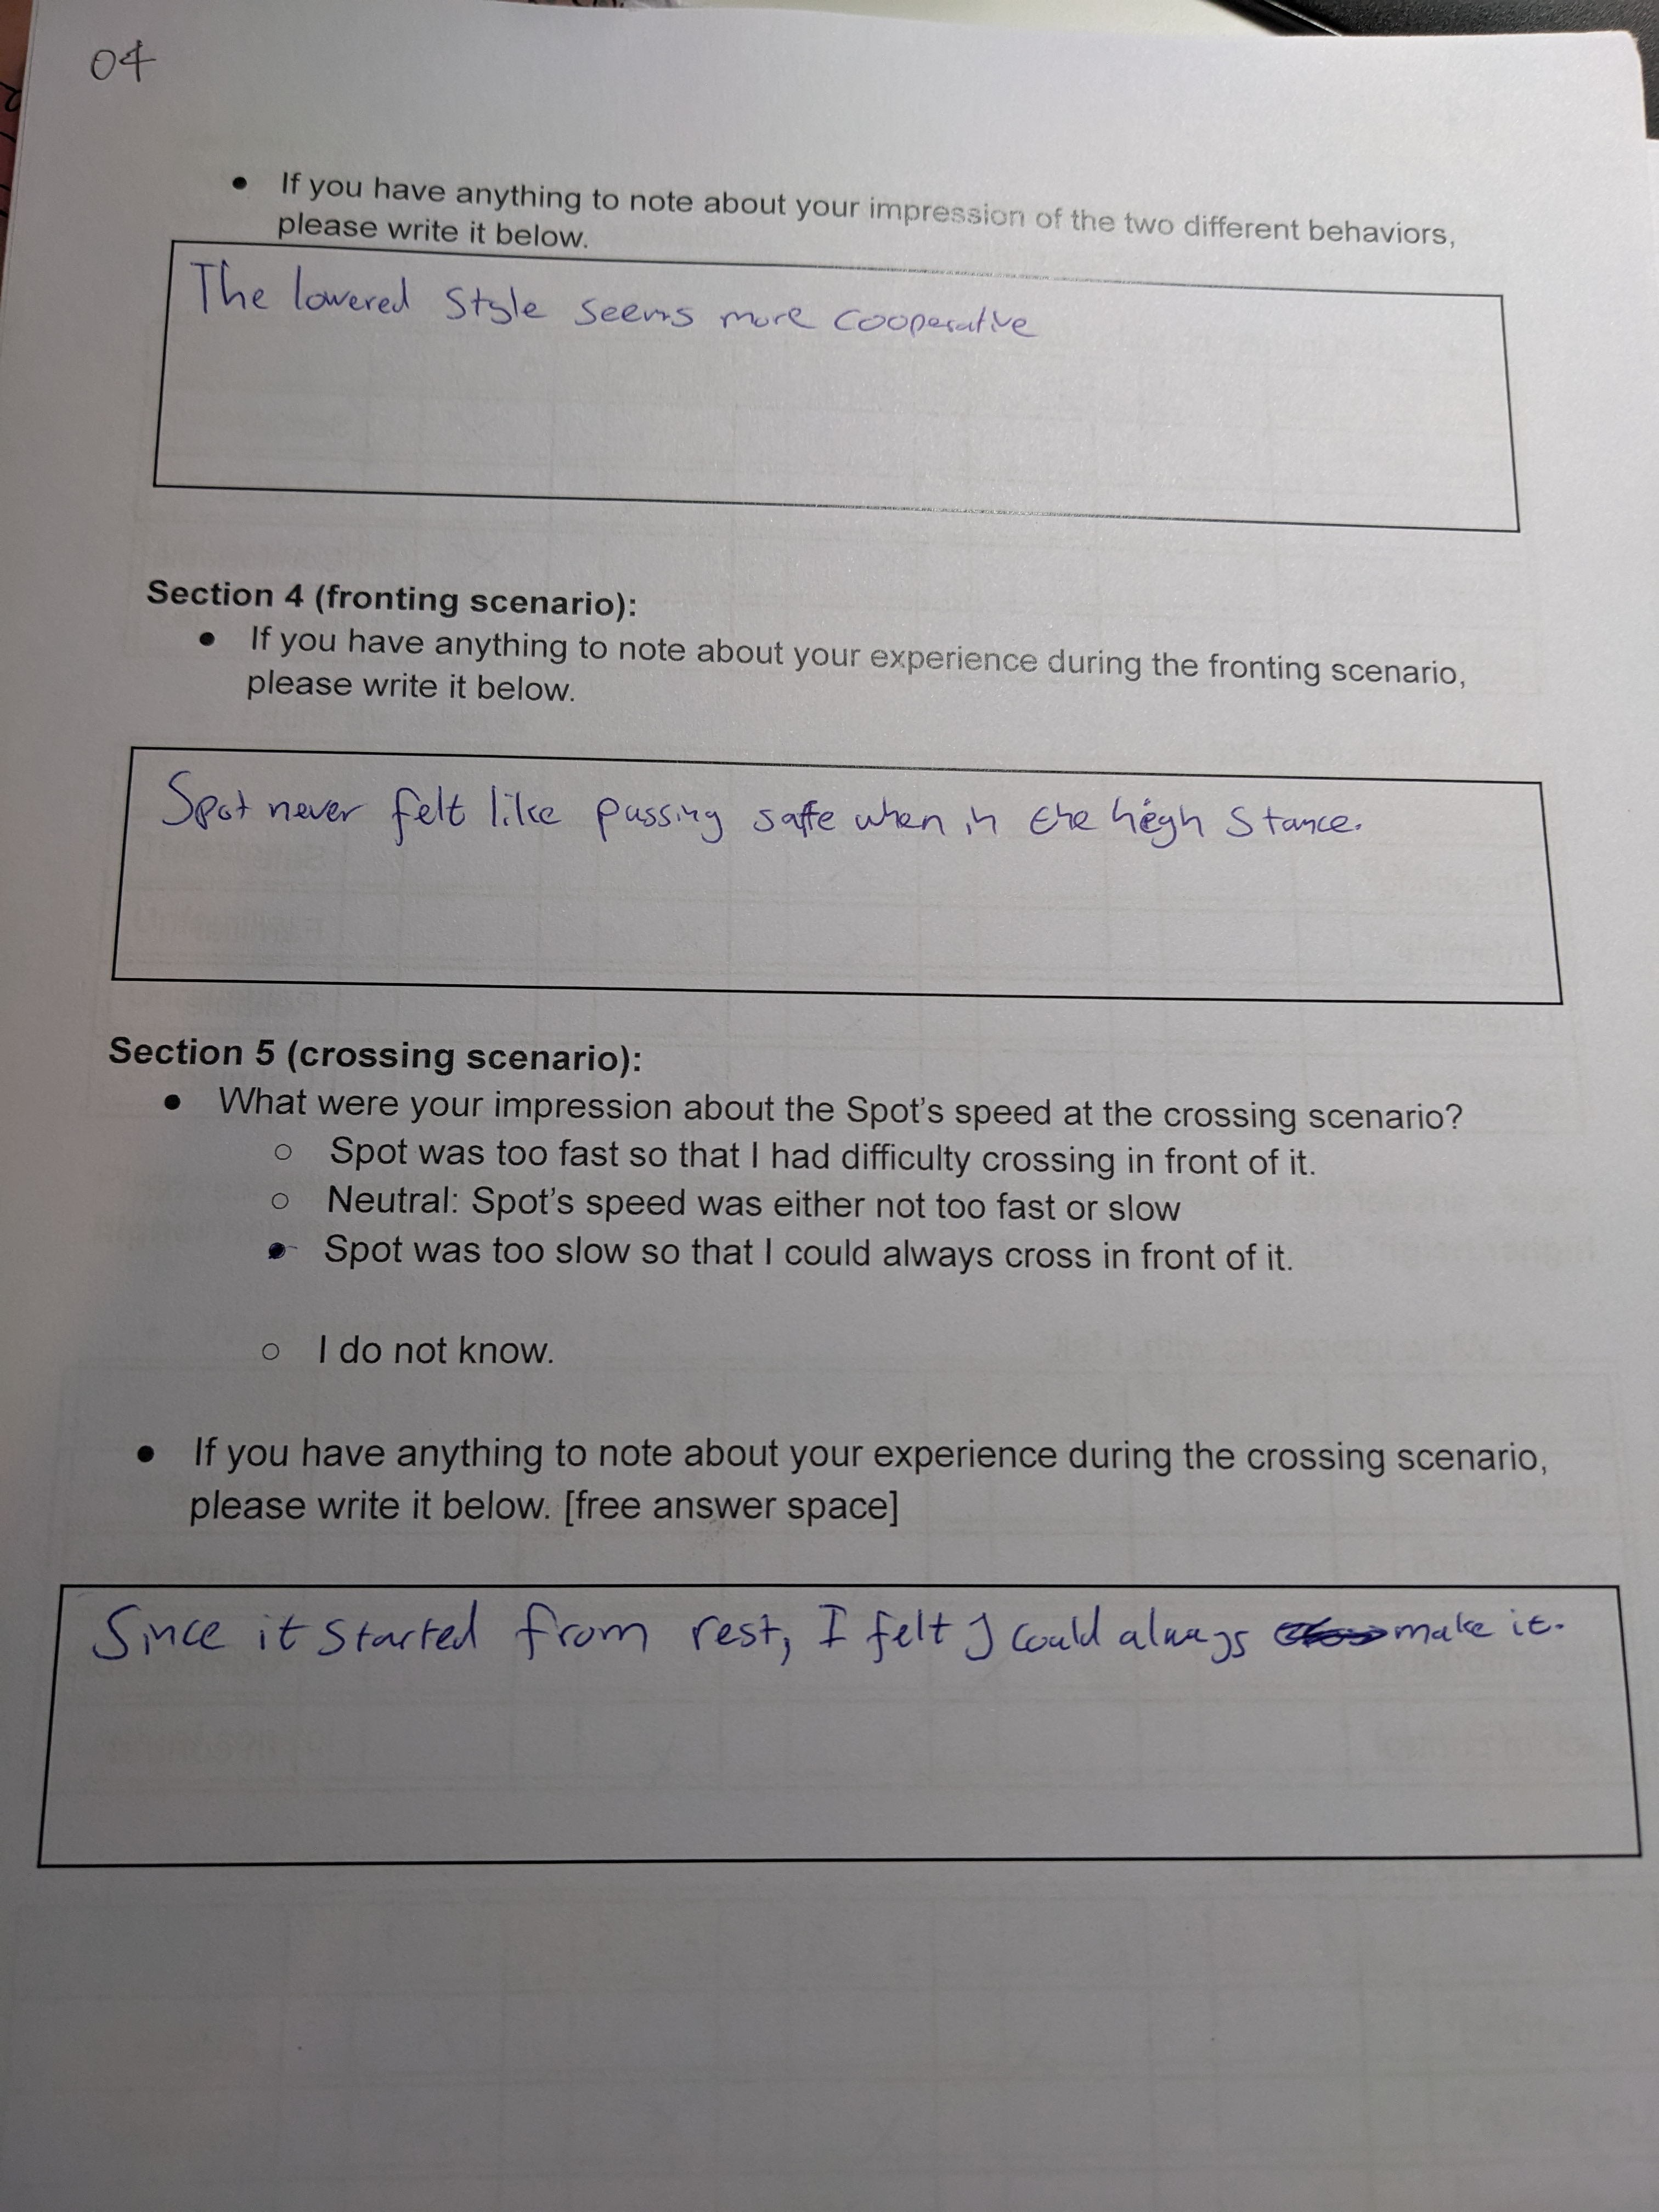 04
• If you have anything to note about your impression of the two different behaviors,
please write it below.
The lowered Style seems more cooperative
Section 4 (fronting scenario):
• If you have anything to note about your experience during the fronting scenario,
please write it below.
Spot never felt like passing safe when in the high stance.
Section 5 (crossing scenario):
• What were your impression about the Spot's speed at the crossing scenario?
○ Spot was too fast so that I had difficulty crossing in front of it.
○ Neutral: Spot's speed was either not too fast or slow
● Spot was too slow so that I could always cross in front of it.
○ I do not know.
• If you have anything to note about your experience during the crossing scenario,
please write it below. [free answer space]
Since it started from rest, I felt I could always make it.